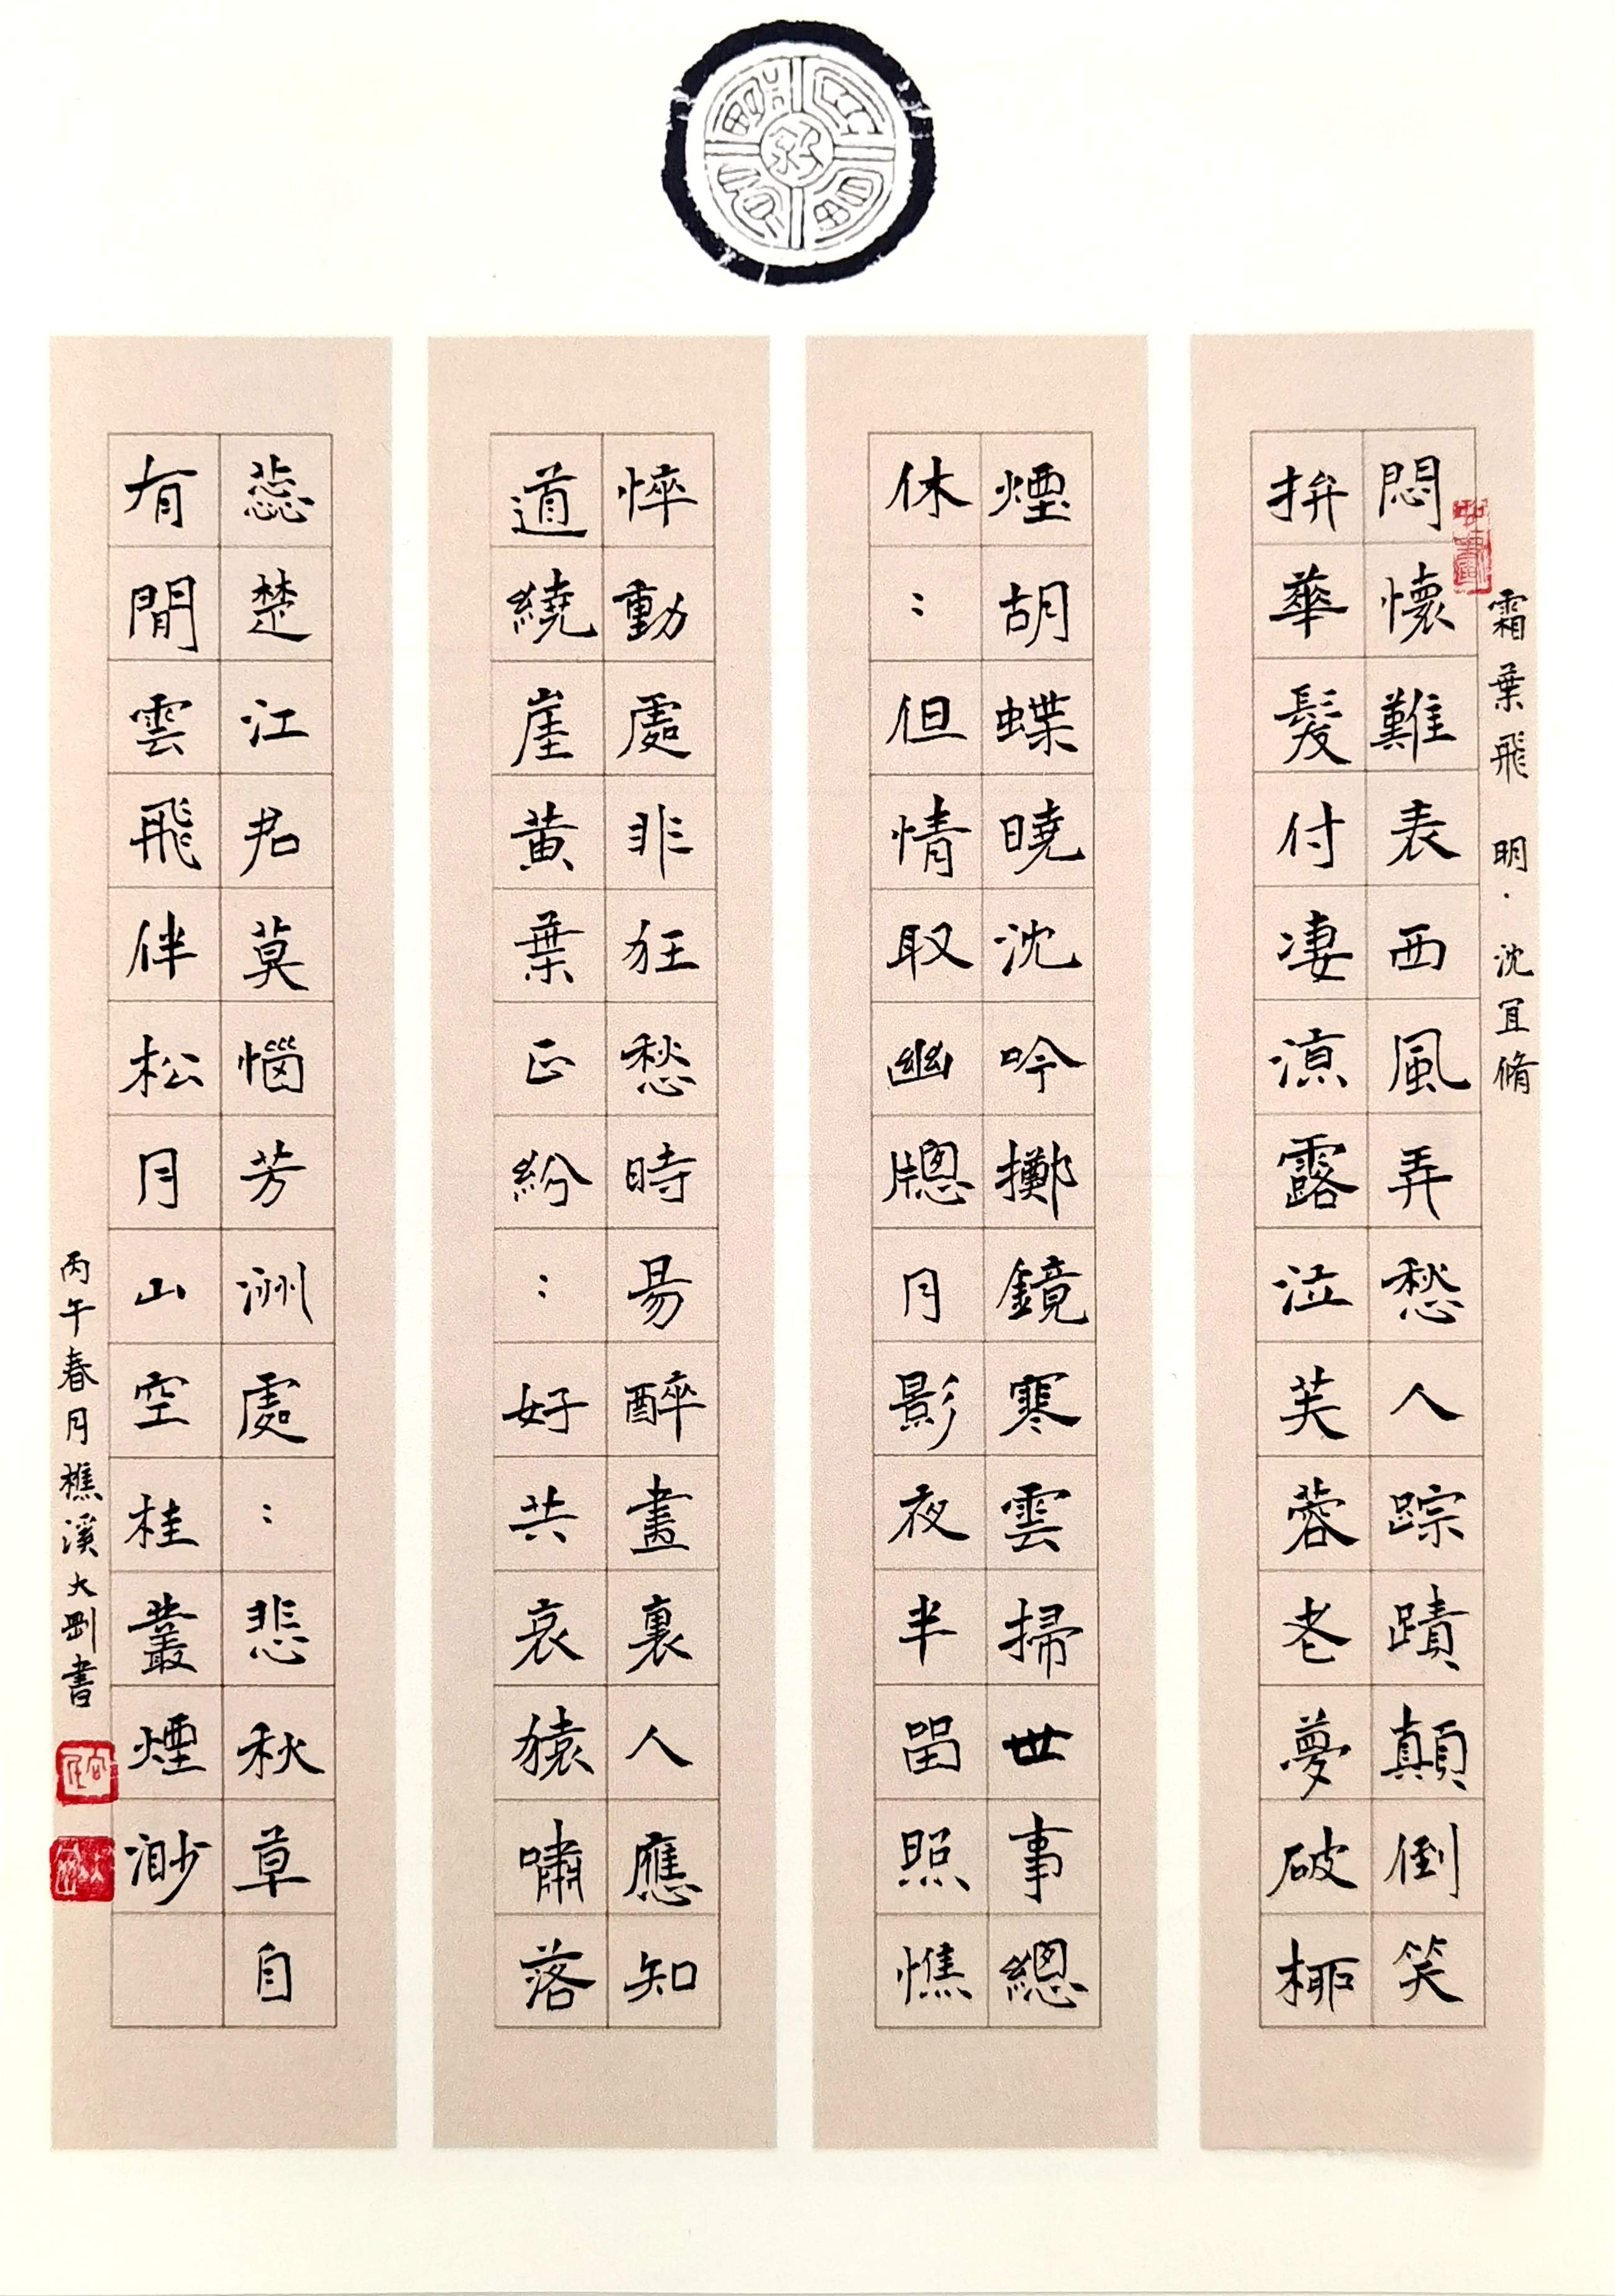 霜葉飛 明·沈宜脩
悶懷難表西風弄愁人踪蹟顛倒笑
拚華髮付凄涼露泣芙蓉老夢破柳
煙胡蝶曉沈吟擲鏡寒雲掃世事總
休：但情取幽牕月影夜半留照憔
悴動處非狂愁時易醉畫裏人應知
道繞崖黃葉正紛：好共哀猿嘯落
蕊楚江君莫惱芳洲處：悲秋草自
有閒雲飛伴松月山空桂叢煙渺
丙午春月樵溪大剛書